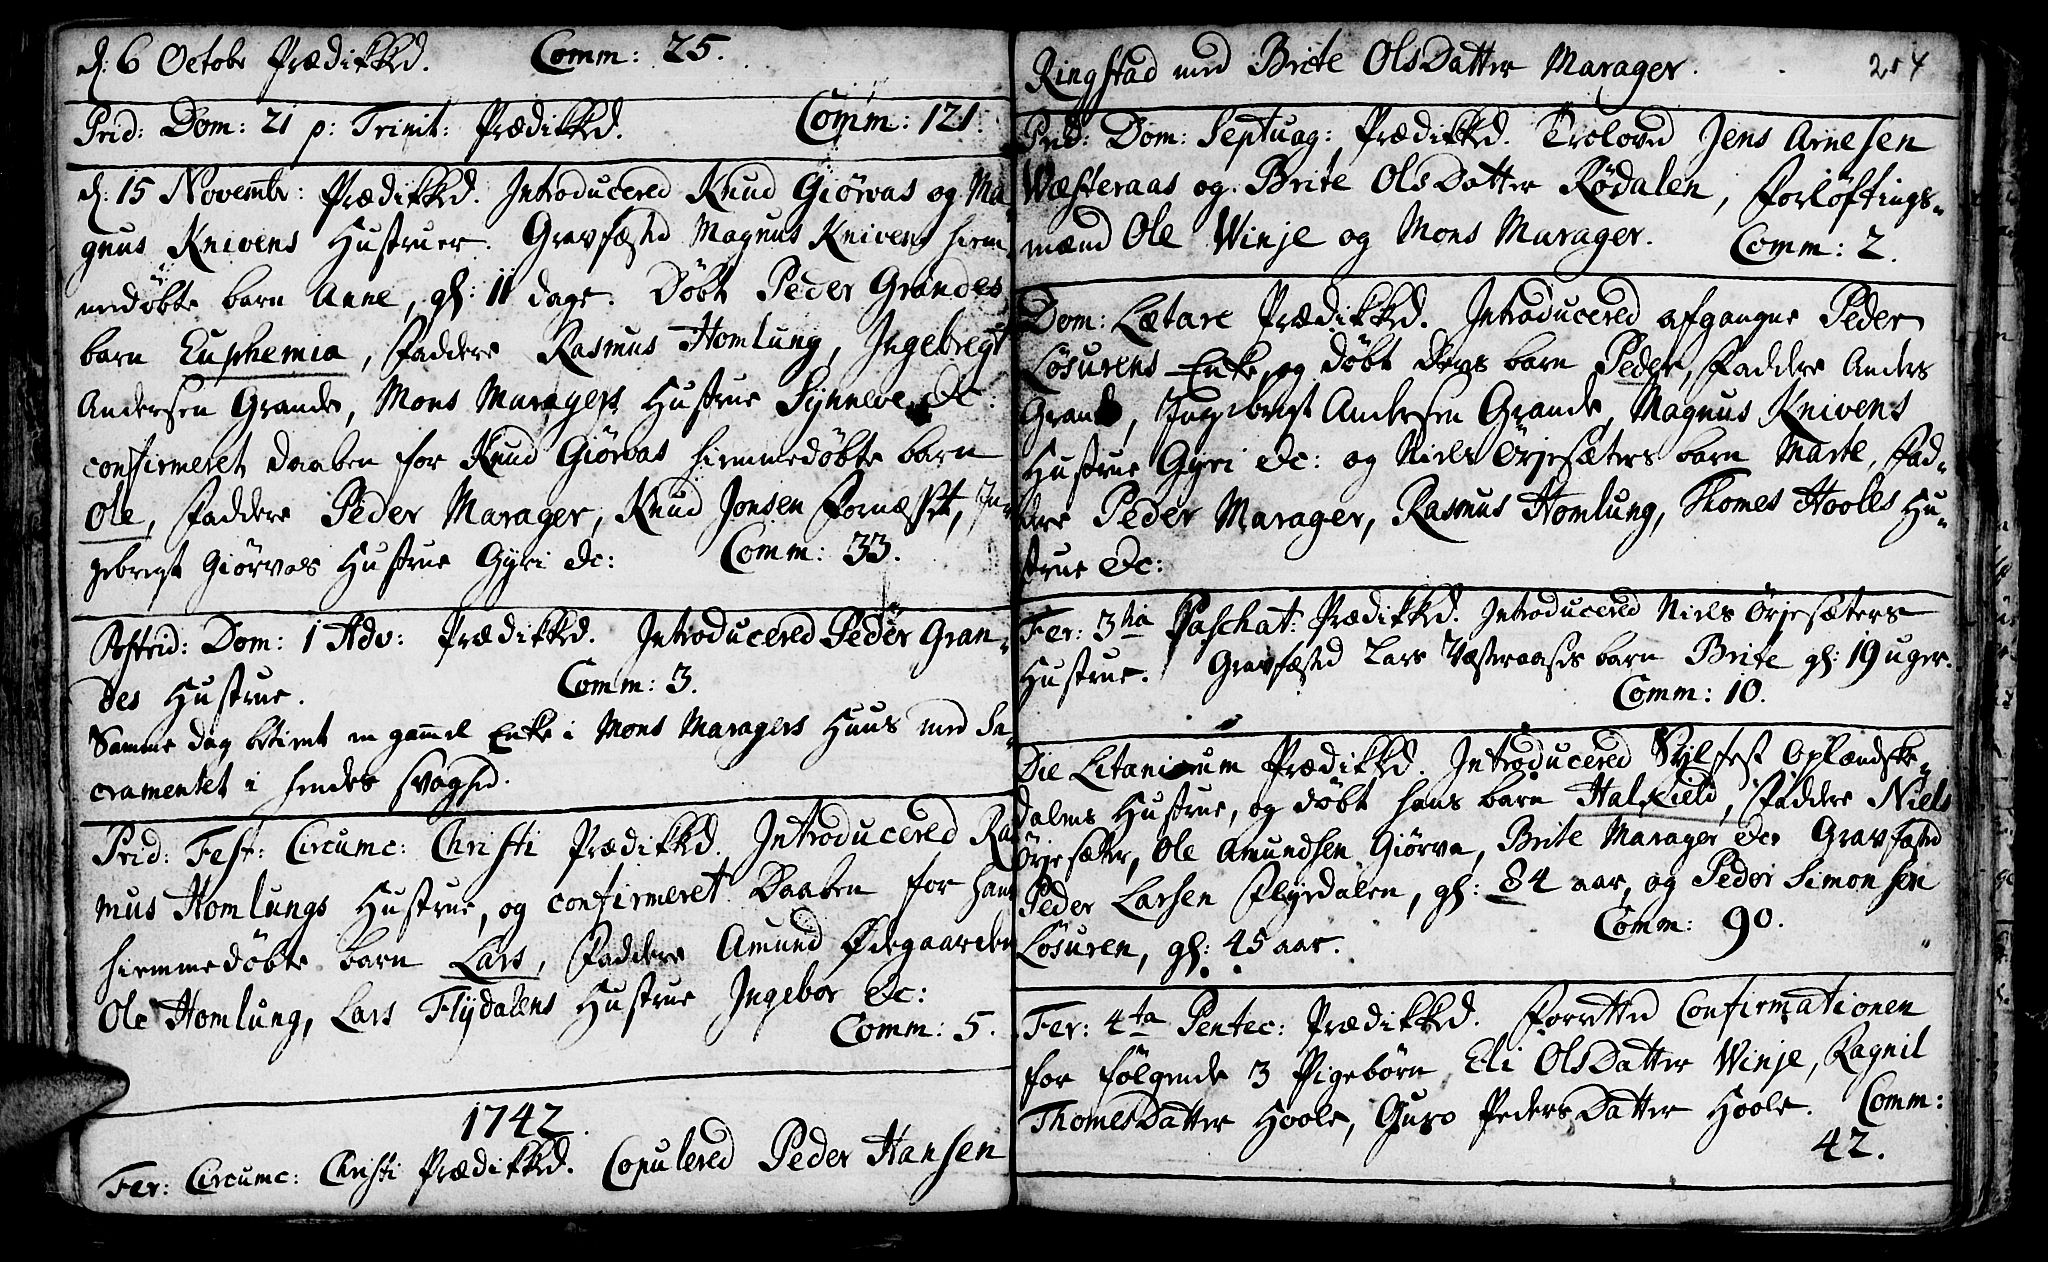 d: 6 Octobr Prædikked. Comm: 25.
Prid: Dom: 21 p: Trinit: Prædikked. Comm: 121.
d: 15 Novembr: Prædikked. Introducered Knud Giörvas og Ma-
gnus Knivens Hustruer. Gravfæsted Magnus Knivens hiem-
medöbte barn Anne, gl: 11 dage. Döbt Peder Grandes
barn Euphemia, Faddere Rasmus Homlung, Ingebregt
Andersen Grande, Mons Maragers Hustrue Synneve &c:
confirmeret daaben for Knud Giörvas hiemmedöbte barn
Ole, Faddere Peder Marager, Knud Jonsen Fornæsset, In-
gebregt Giörvas Hustrue Gyri &c: Comm: 33.
Postrid: Dom: 1 Adv: Prædikked. Introducered Peder Gran-
des Hustrue. Comm: 3.
Samme dag betient en gamel Enke i Mons Maragers Huus med Sa-
cramentet i hendes svaghed.
Prid: Fest: Circumc: Christi Prædikked. Introducered Ras
mus Homlungs Hustrue, og confirmeret Daaben for hans
hiemmedöbte barn Lars, Faddere Amund Ødegaarden
Ole Homlung, Lars Flydalens Hustrue Ingebor &c:
Comm: 5.
1742.
Fer: Circumc: Christi Prædikked. Copulered Peder Hansen
Ringstad med Brite OlsDatter Marager.
Prid: Dom: Septuag: Prædikked. Troloved Jens Arnesen
Wæsteraas og Brite OlsDatter Rødalen, Forlöftings-
mænd Ole Winje og Mons Marager. Comm: 2.
Dom: Lætare Prædikked. Introducered afgangne Peder
Lösurens Enke, og döbt deres barn Peder, Faddere Anders
Grande, Ingebregt Andersen Grande, Magnus Knivens
Hustrue Gyri &c: og Niels Örjesæters barn Marte, Fad-
dere Peder Marager, Rasmus Homlung, Thomes Hooles Hu-
strue &c:
Fer: 3tia Paschat: Prædikked. Introducered Niels Örjesæters
Hustrue. Gravfæsted Lars Væsteraasis barn Brite gl: 19 uger.
Comm: 10.
Die Litaniarum Prædikked. Introducered Sylfest Oplændske-
dalens Hustrue, og döbt hans barn Halkield, Faddere Niels
Örjesæter, Ole Amundsen Giörva, Brite Marager &c. Gravfæsted
Peder Larsen Flyrdalen, gl: 84 aar, og Peder Simonsen
Lösuren, gl: 45 aar. Comm: 90.
Fer: 4ta Pentec: Prædikked. Forretted Confirmationen
for fölgende 3 Pigebörn Eli OlsDatter Winje, Ragnil
ThomesDatter Hoole, Guro PedersDatter Hoole. Comm:
42.